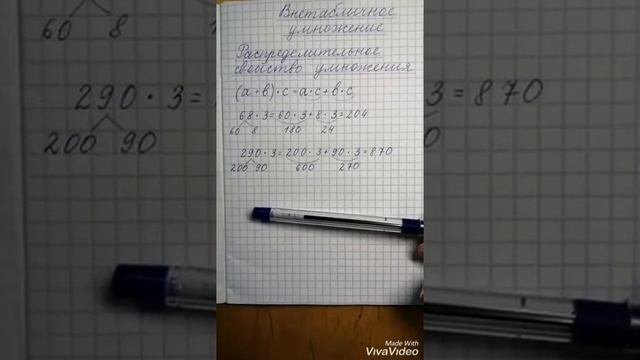 Внетабличное
умножение
Распределительное
свойство умножения
(а + в) · с = а · с + в · с
68 · 3 = 60 · 3 + 8 · 3 = 204
60 8 180 24
290 · 3 = 200 · 3 + 90 · 3 = 870
200 90 600 270
60 8
290 · 3 =
200 90
· 3 = 870
Made With
VivaVideo